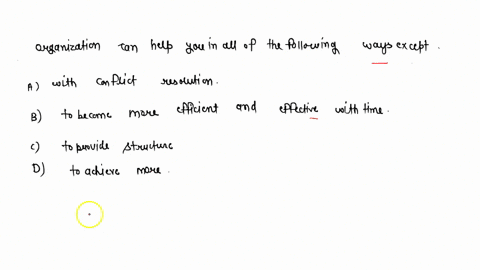 organization can help you in all of the following ways except.
A) with conflict resolution.
B) to become more efficient and effective with time.
C) to provide structure
D) to achieve more.